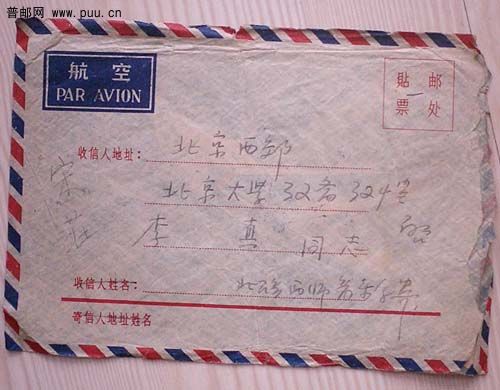 普邮网 www.puu.cn
航空
PAR AVION
貼邮
票处
收信人地址:
北京西郊
北京大学32斋324室
李真同志 启
收信人姓名:
寄信人地址姓名